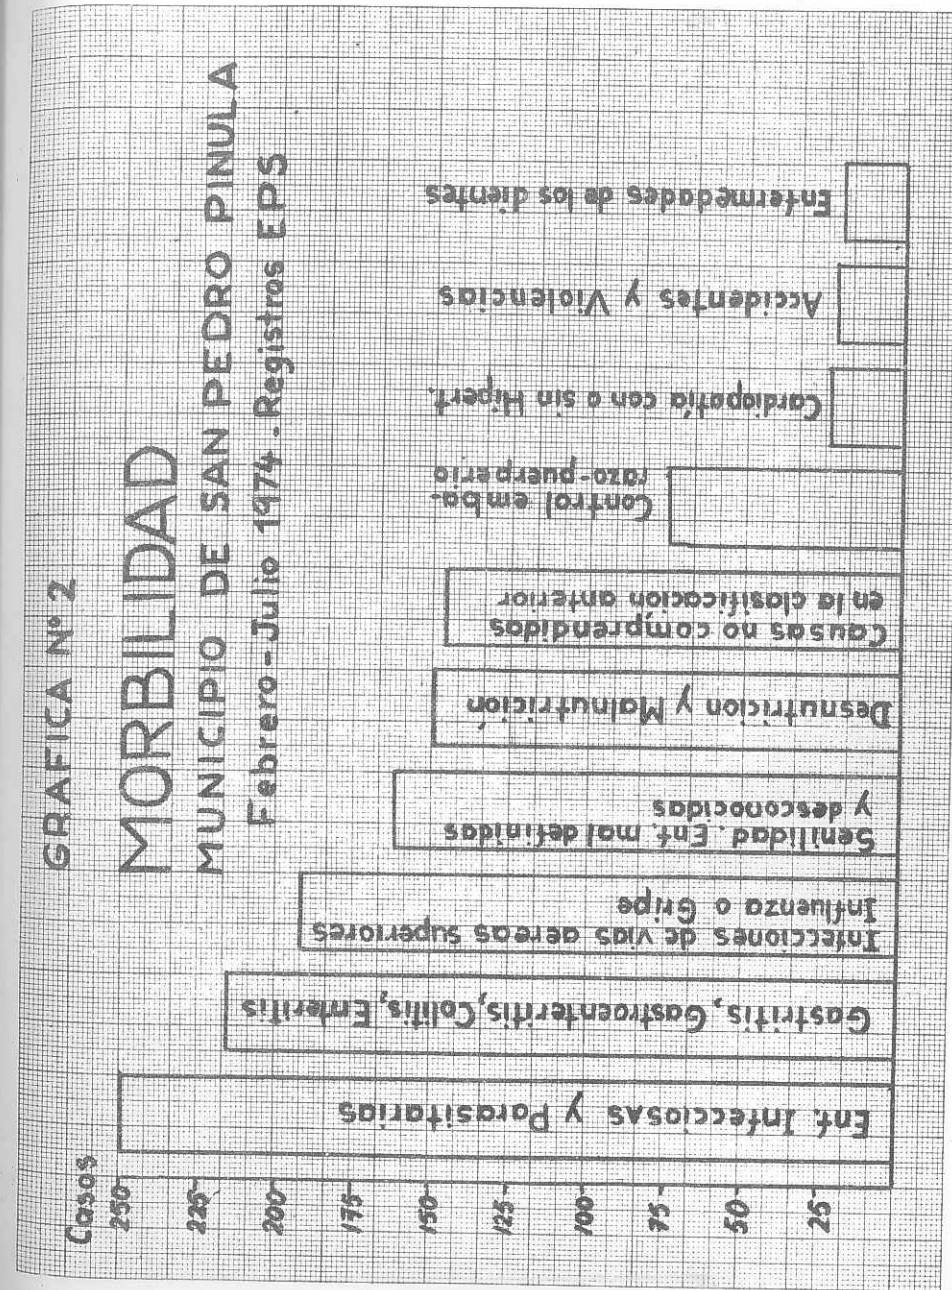 GRAFICA Nº 2
MORBILIDAD
MUNICIPIO DE SAN PEDRO PINULA
Febrero-Julio 1974.-Registros EPS
Casos
250-
225-
200-
175-
150-
125-
100-
75-
50-
25-
Enf. InfecciosAs y Parasitarias
Gastritis, Gastroenteritis, Colitis, Enteritis
Infecciones de vias aereas superiores
Influenza o Gripe
Senilidad. Enf. mal definidas
y desconocidas
Desnutricion y Malnutrición
Causas no comprendidas
en la clasificacion anterior
Control emba-
razo-puerperio
Cardiopatía con o sin Hipert.
Accidentes y Violencias
Enfermedades de los dientes